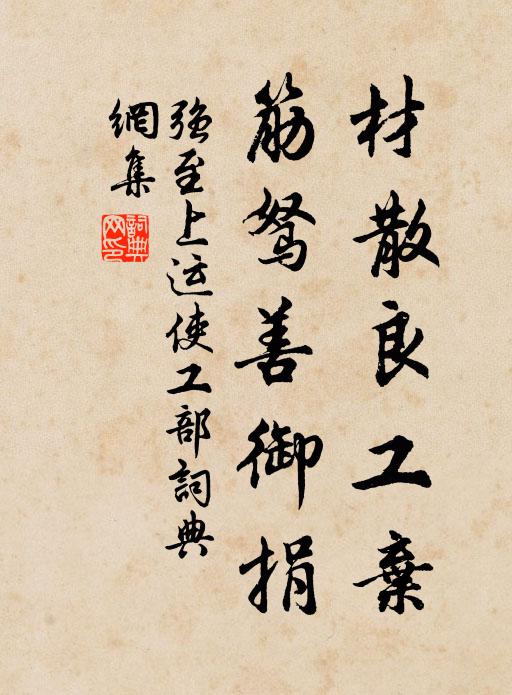 材散良工棄
筋駑善御捐
強至上运使工部詞典
網集
詞典
网印